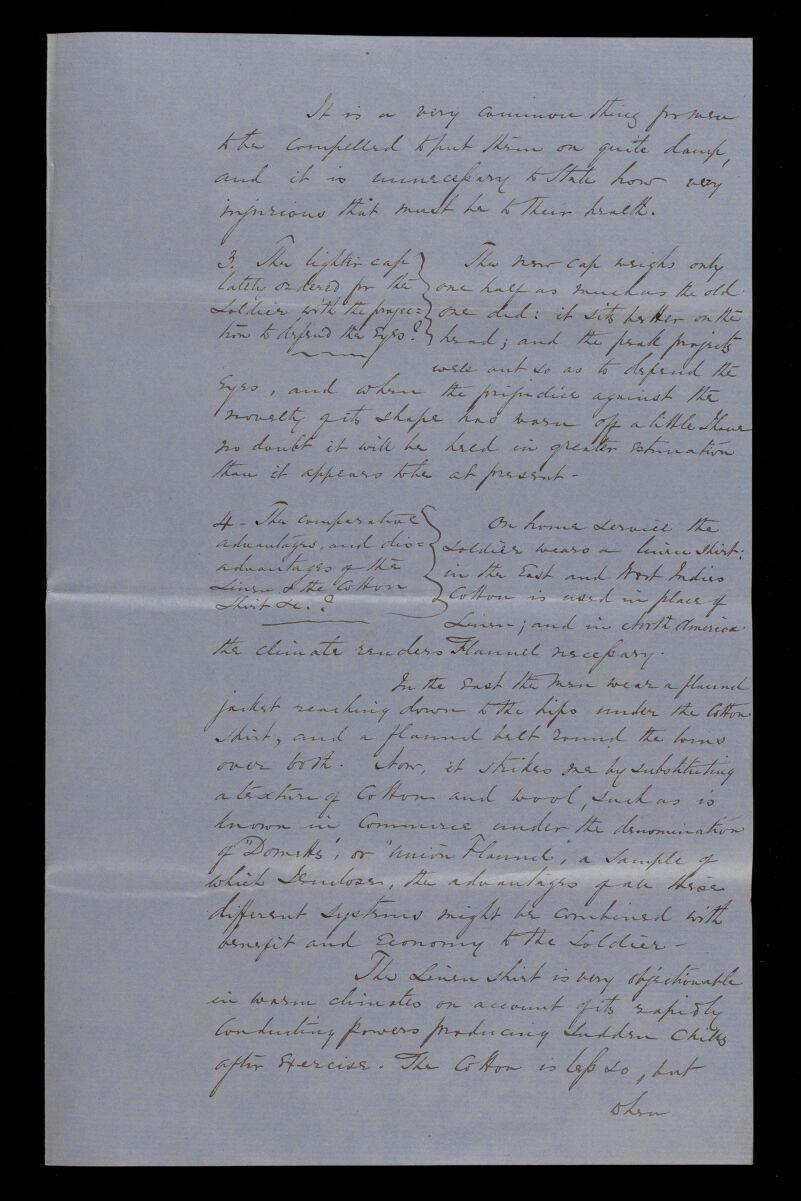 It is a very common thing for men
to be compelled to put them on quite damp,
and it is unnecessary to state how very
injurious that must be to their health.
3. The lighter cap
lately ordered for the
Soldier with the projec=
tion to defend the Eyes?
The new cap weighs only
one half as much as the old
one did: it sits better on the
head; and the peak projects
well out so as to defend the
Eyes, and when the prejudice against the
novelty of its shape has worn off a little I have
no doubt it will be held in greater estimation
than it appears to be at present -
4 - The comparative
advantages, and dis=
advantages of the
Linen & the Cotton
Shirt &c.?
On home service the
Soldier wears a linen shirt:
in the East and West Indies
Cotton is used in place of
Linen; and in North America
the climate renders Flannel necessary.
In the East the men wear a flannel
jacket reaching down to the hips under the Cotton
shirt, and a flannel belt round the loins
over both. Now, it strikes me by substituting
a texture of Cotton and wool, such as is
known in Commerce under the denomination
of "Dometts", or "Union Flannel", a sample of
which I enclose, the advantages of all these
different systems might be combined with
benefit and Economy to the Soldier -
The Linen shirt is very objectionable
in warm climates on account of its rapidly
Conducting powers producing sudden Chills
after Exercise. The Cotton is less so, but
when